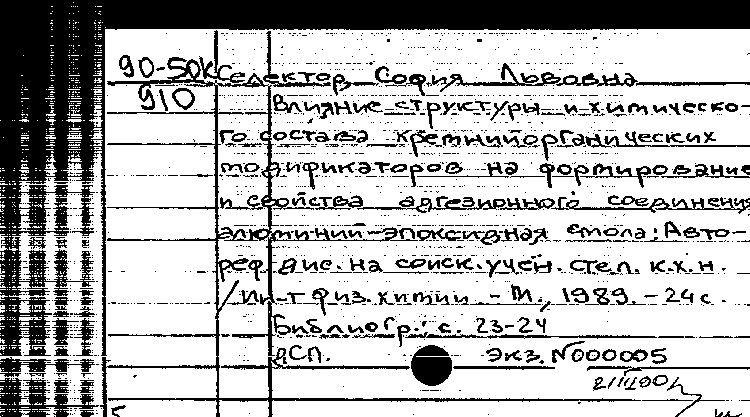 90-50к Селектер, София Львовна
910 Влияние структуры и химическо-
го состава кремнийорганических
модификаторов на формирование
и свойства адгезионного соединения
алюминий-эпоксидная смола: Авто-
реф. дис. на соиск. учен. степ. к.х.н.
/ Ин-т физ. химии. - М., 1989. - 24 с.
Библиогр.: с. 23-24
ДСП. Экз. №000005